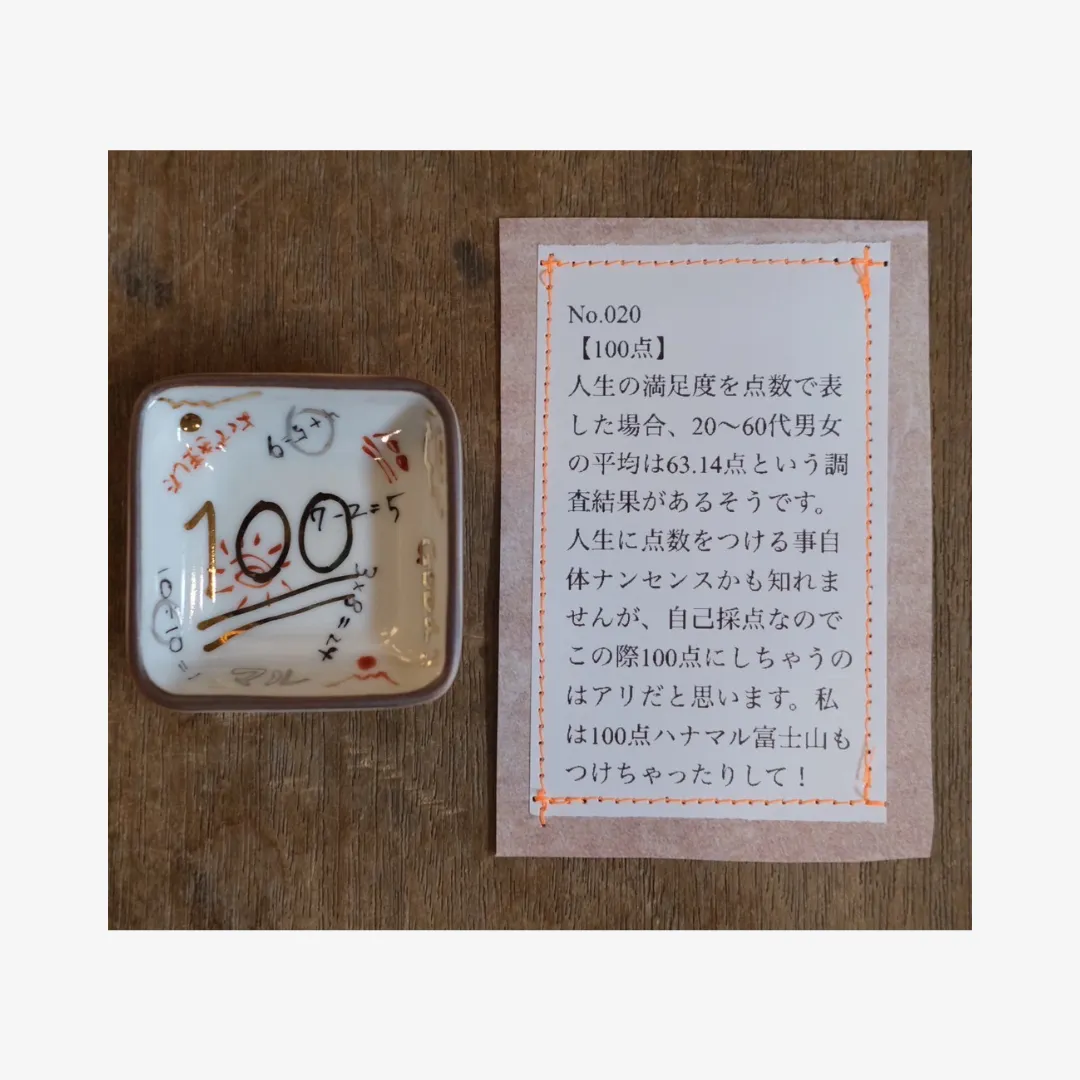 よくできました
4+5=9
100
7-2=5
3×8=24
10÷10=
Good
No.020
【100点】
人生の満足度を点数で表
した場合、20〜60代男女
の平均は63.14点という調
査結果があるそうです。
人生に点数をつける事自
体ナンセンスかも知れま
せんが、自己採点なので
この際100点にしちゃうの
はアリだと思います。私
は100点ハナマル富士山も
つけちゃったりして！